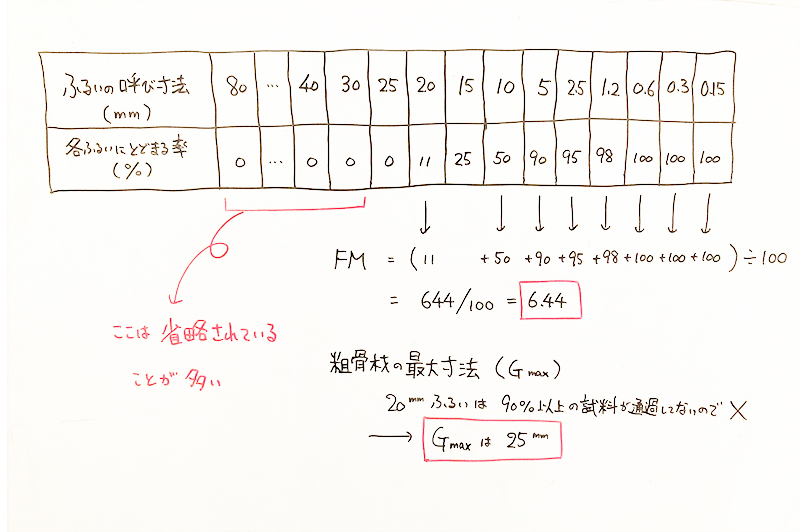 ふるいの呼び寸法(mm) 80 … 40 30 25 20 15 10 5 2.5 1.2 0.6 0.3 0.15
各ふるいにとどまる率(%) 0 … 0 0 0 11 25 50 90 95 98 100 100 100
↓ ↓ ↓ ↓ ↓ ↓ ↓ ↓
FM = (11 +50 +90 +95 +98 +100 +100 +100) ÷100
= 644/100 = 6.44
ここは 省略されている
ことが 多い
粗骨材の最大寸法 (Gmax)
20mm ふるいは 90%以上の試料が通過してないので ×
→ Gmax は 25mm